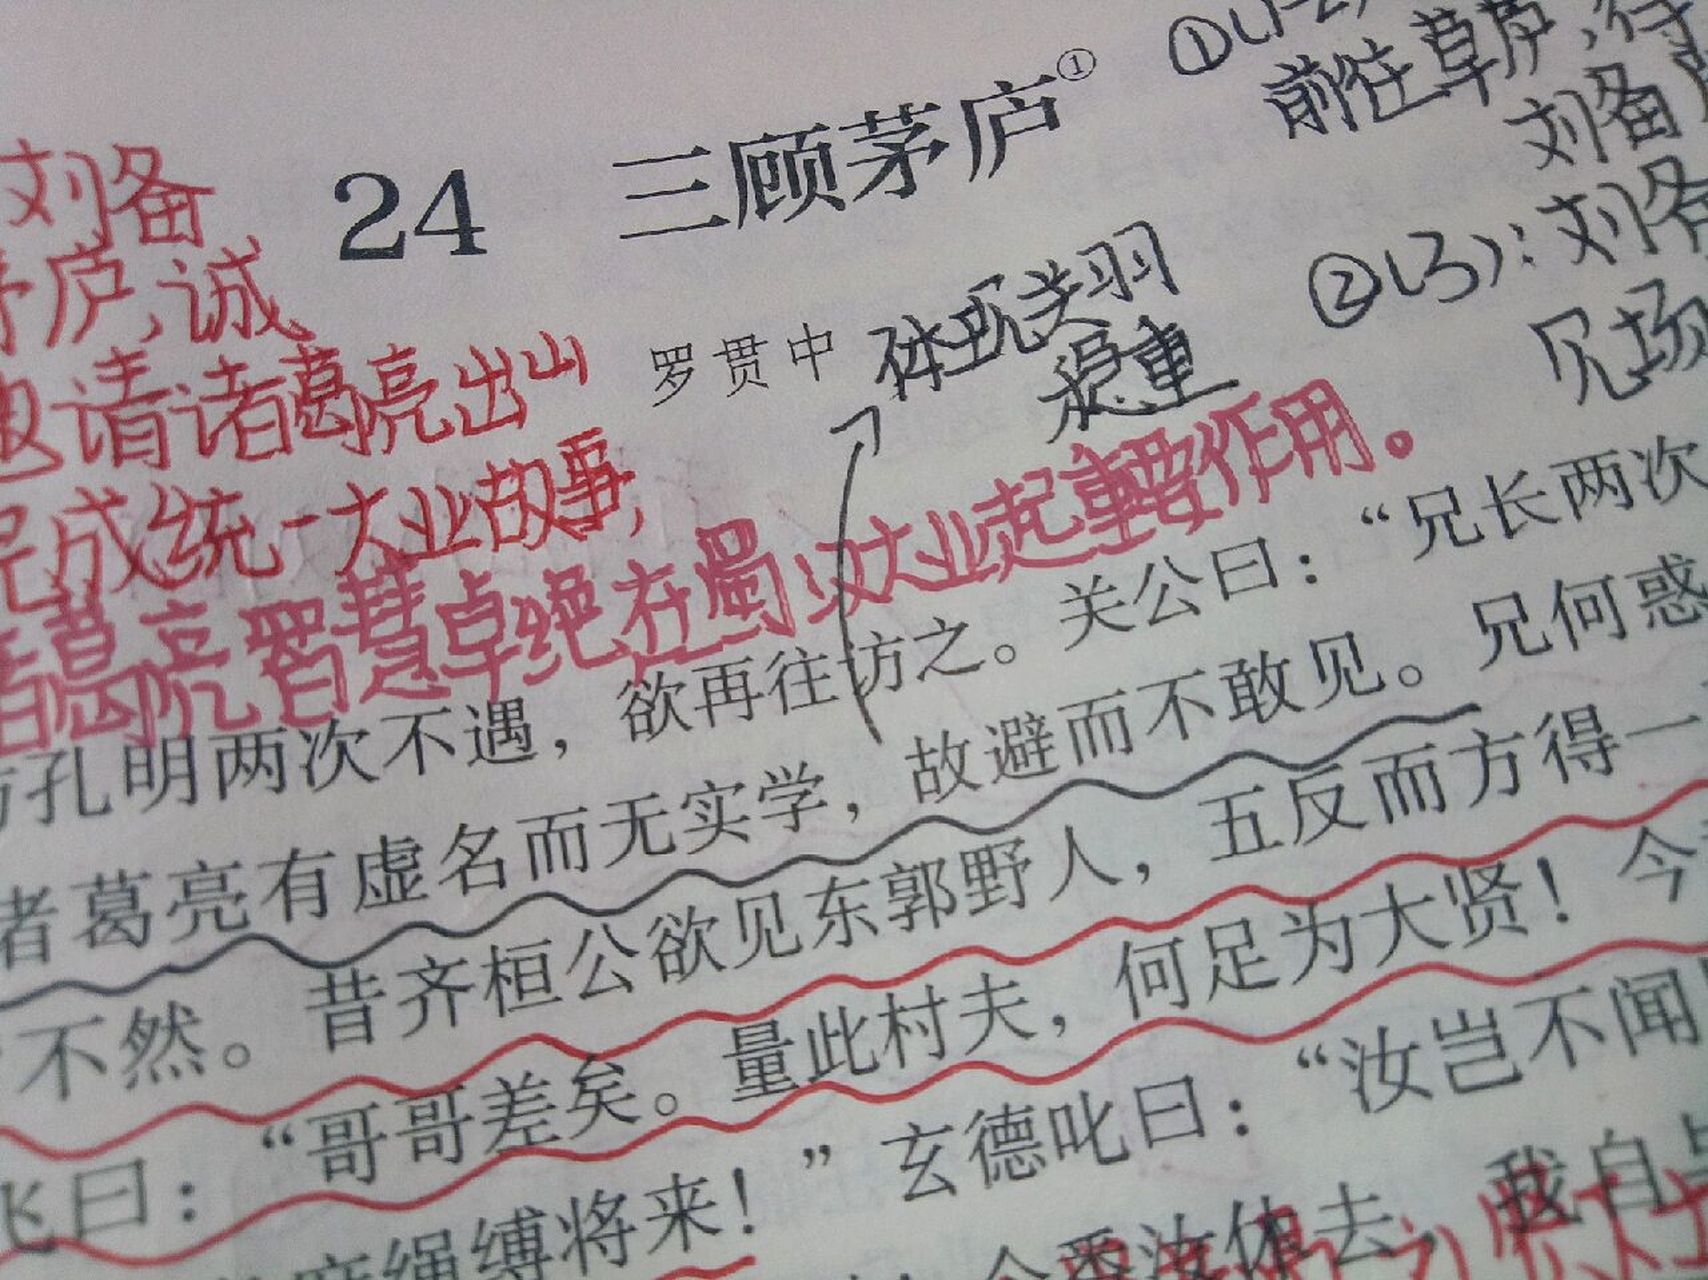 24 三顾茅庐①
罗贯中
刘备
茅庐,诚
邀请诸葛亮出山
完成统一大业故事,
诸葛亮智慧卓绝在蜀汉大业起重要作用。
体现关羽
稳重
①(1-2)
前往草庐,待
刘备
②(3):刘备
见场
访孔明两次不遇，欲再往访之。关公曰：“兄长两次
诸葛亮有虚名而无实学，故避而不敢见。兄何惑
不然。昔齐桓公欲见东郭野人，五反而方得一
飞曰：“哥哥差矣。量此村夫，何足为大贤！今
麻绳缚将来！”玄德叱曰：“汝岂不闻
今番汝休去，我自